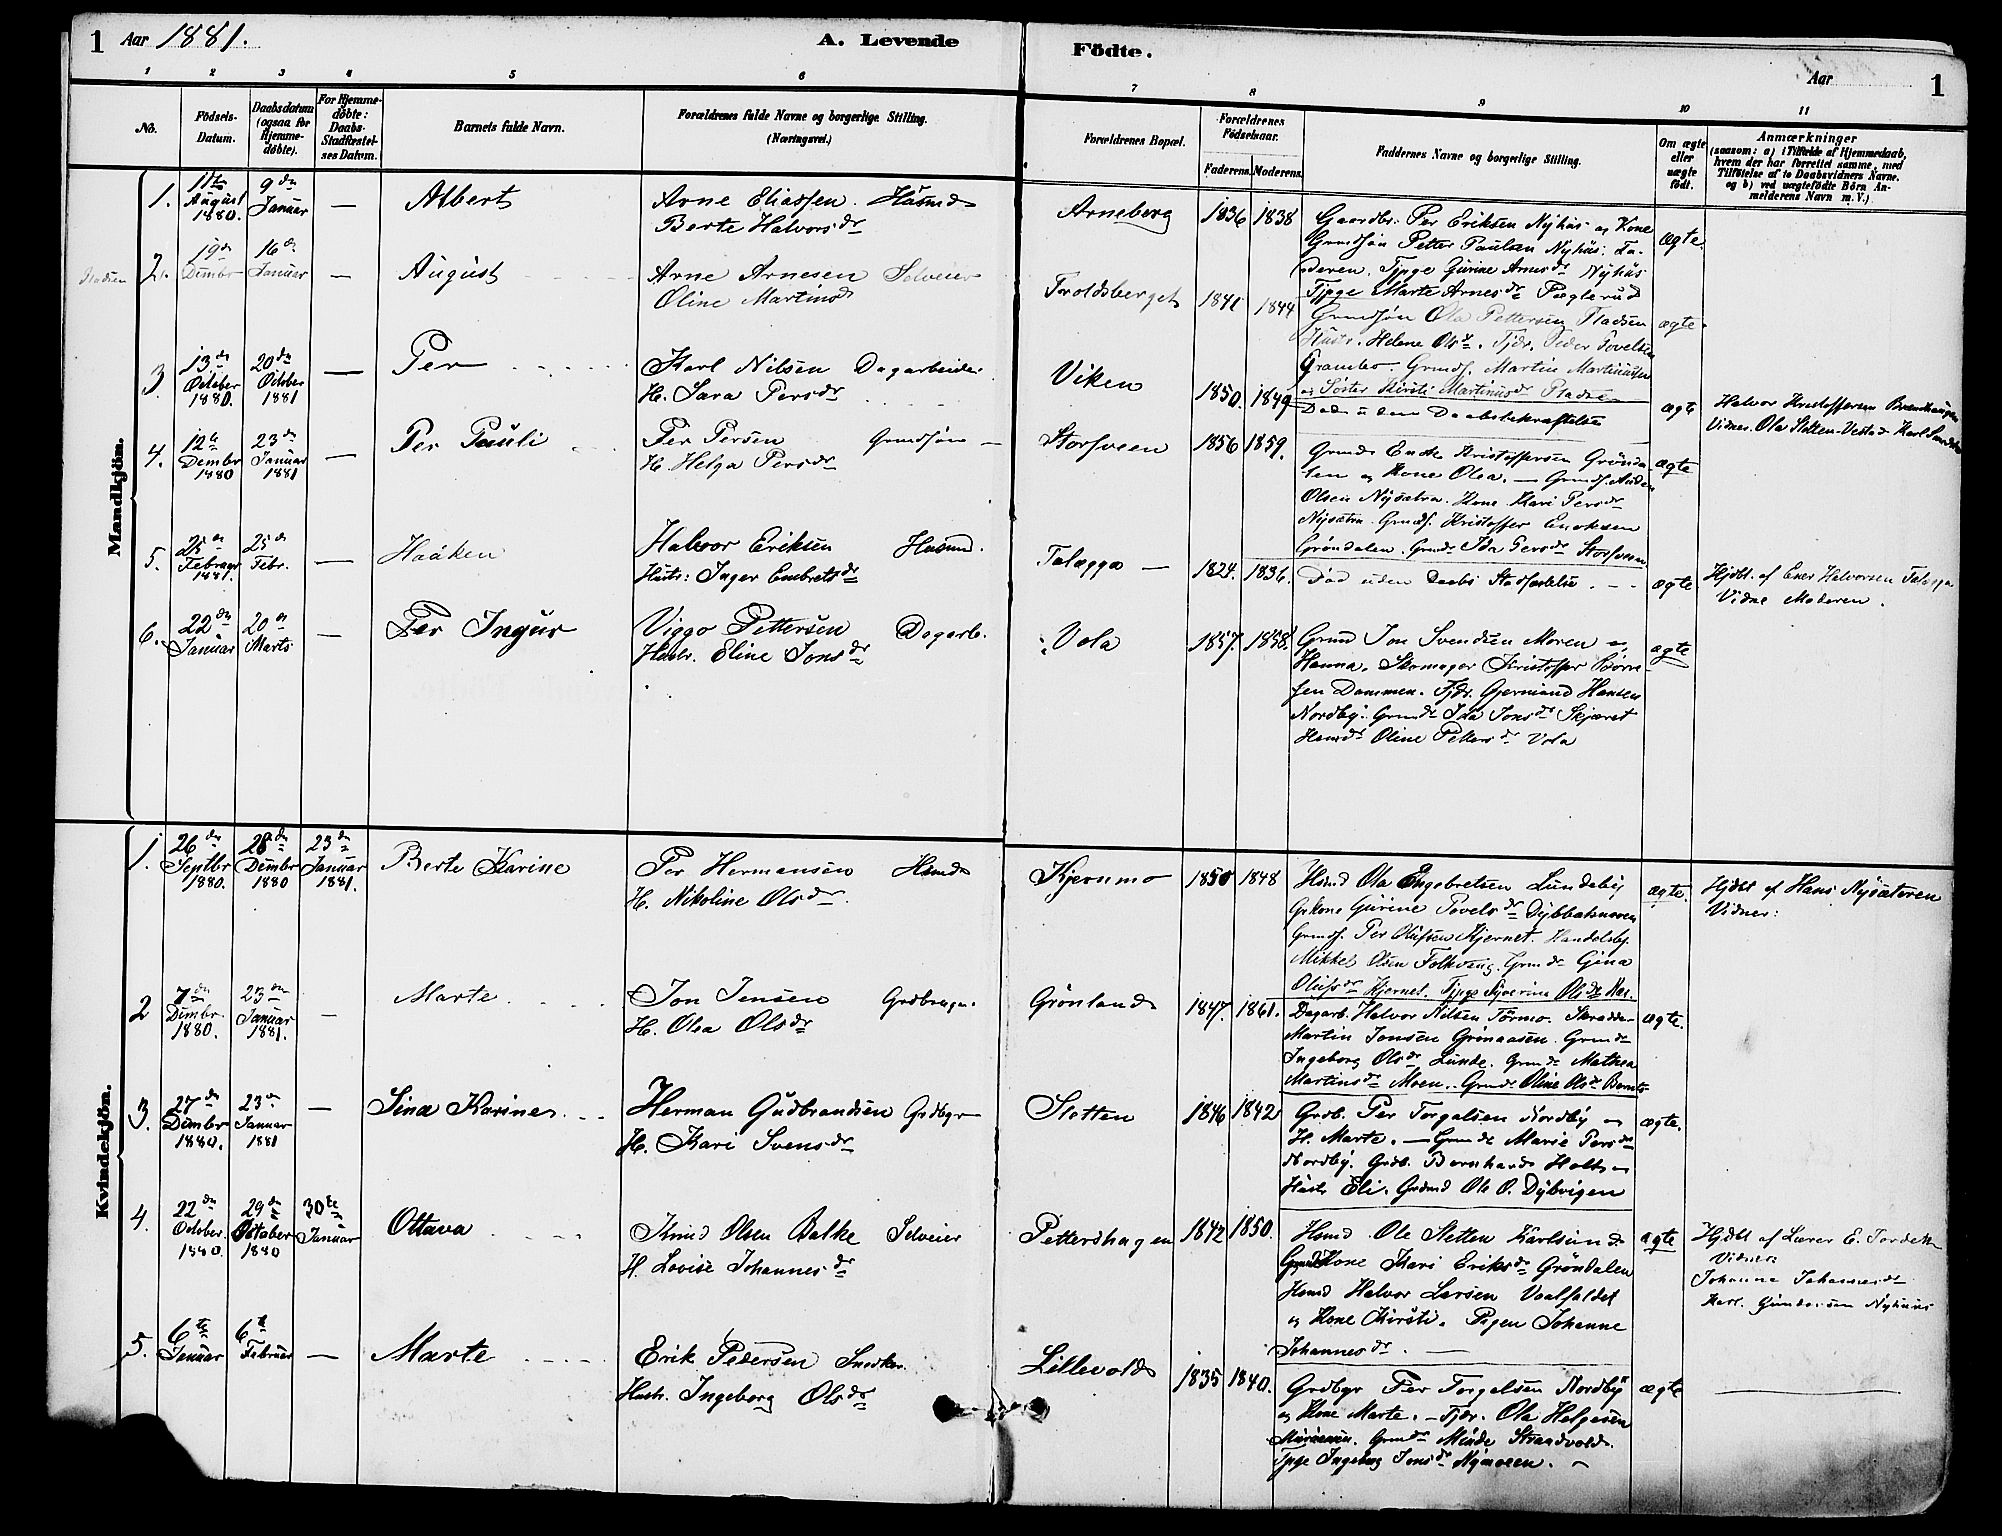 1 Aar 1881.
A. Levende
Födte.
Aar 1
1 2 3 4 5 6 7 8 9 10 11
No.
Födsels-Datum.
Daabsdatum (ogsaa for Hjemme-döbte).
For Hjemme-döbte: Daabs-Stadfæstel-ses Datum.
Barnets fulde Navn.
Forældrenes fulde Navne og borgerlige Stilling. (Næringsvei.)
Forældrenes Bopæl.
Forældrenes Födselsaar.
Faderens. Moderens.
Faddernes Navne og borgerlige Stilling.
Om ægte eller uægte födt.
Anmærkninger
(saasom: a) i Tilfælde af Hjemmedaab,
hvem der har forrettet samme, med
Tilföielse af to Daabsvidners Navne.
og b) ved uægtefödte Börn An-
melderens Navn m. V.)
Mandkjön.
1. 11te August 1880. 9de Januar — Albert
Arne Eliassen. Husmd
Berte Halvorsdr
Arneberg 1836 1838
Gaardbr. Per Eriksen Nyhus og Kone
Grundsøn Petter Paulsen Nyhus. Fa-
deren. Tjpge Gurine Arnesdr Nyhus
Tjpge Marte Arnesdr
ægte.
2. 19de Dembr 16de Januar — August
Arne Arnesen Selveier
Oline Martinsdr
Toroldsberget 1841 1844
Grundsøn Ola Pettersen Pladsen
Hustr. Helene Olsdr. Tjdr. Peder Povelsen
Grambo. Grmds. Martin Martinussen
og Søster Kirsti Martinusdr Pladsen
ægte.
3 13de October 1880. 20de October 1881 — Per
Karl Nilsen Dagarbeider
H. Sara Persdr
Viken 1850. 1849
Død uden Daabsbekræftelse
ægte
Halvor Kristoffersen
Vidner. Ola Stetten-Vestad Karl
4. 12te Dembr 1880 23de Januar 1881 — Per Pauli
Per Persen Grundsøn —
H. Helga Persdr
Storsveen 1856 1859.
Grund. Enok Kristoffersen Grønda-
len og Kone Olea. — Grmds. Anders
Olsen Nysætra. Kone Kari Persdr
Nysætra. Grmds. Kristoffer Enoksen
Grøndalen. Grmdr Ida Persdr Storsveen
ægte
5. 25de Februar 1881. 25de Febr. — Haaken
Halvor Eriksen Husmd.
Hustr: Inger Embretsdr
Talagga — 1824. 1836.
Død uden Daabs Stadfæstelse . - -
ægte
Hjdbt. af Ener Halvorsen Talagga
Vidne Moderen.
6. 22de Januar 20de Marts — Per Ingur
Viggo Pettersen Dagarb.
Hustr. Eline Jonsdr
Vola 1857. 1858.
Grmd Jon Svendsen Moren og
Hanna. Skomager Kristoffer Børre-
sen Dammen. Tjdr. Gjermund Hansen
Nordby. Grmdr Ida Jonsdr Skjæret
Husmdr Oline Pettersdr Vola
ægte
Kvindekjön.
1. 26de Septbr 1880. 28de Dembr 1880 23de Januar 1881. Berte Karine
Per Hermansen Husmd
H. Nikoline Olsdr.
Kjernmo 1850 1848
Husmd Ola Engebretsen Lundeby
Gpkone Gurine Povelsdr
Grmds. Per Olufsen Kjernet. Handelsbj.
Mikkel Olsen Folkvang. Grmdr Gina
Olufsdr Kjernet. Tjpge Syverine Olsdr
ægte.
Hjdbt af Hans Nysæteren
Vidner:
2 7de Dembr. 1880. 23de Januar 1881. — Marte
Jon Jensen Grdbruger
H. Olea Olsdr
Grönland 1847. 1861.
Dagarb. Halvor Nilsen Tørmo. Skrædder
Martin Jonsen Grønaasen. Grmdr
Ingeborg Olsdr Lunde. Grmdr Mathea
Martinsdr Moen. Grmdr Oline Olsdr
ægte.
3. 27de Dembr 1880. 23de Januar 1881 — Sina Karine
Herman Gudbrandsen Grdbgr
H. Kari Svensdr
Stetten 1846 1842
Grdb. Per Torgalsen Nordby og
H. Marte. — Grmdr Marie Persdr
Nordby. Grdb. Bernhard Holt og
Hustr Eli. Grdmd Ole O. Dybvigen
ægte.
4. 22de October. 1880. 29de October 1880 30te Januar Ottava
Knud Olsen Balke Selveier
H. Lovise Johannesdr
Pettershagen 1842 1850.
Husmd Ole Stetten Karlsund
Kone Kari Eriksdr Grøndalen
Husmd Halvor Larsen Vaalfaldet
og Kone Kirsti. Pigen Johanne
Johannesdr. —
ægte
Hjdbt af Lærer E.
Vidner:
Johanne Johannesdr
Karl Gundersen Nyhuus
5. 6te Januar 6te Februar — Marte
Erik Pedersen Snedker
Hustr. Ingeborg Olsdr
Lillevold 1835 1840.
Grdbgr Per Torgelsen Nordby
og Kone Marte. — Tjdr. Ola Helgesen
Grmdr Minde Strandvold.
Tjpge Ingeborg Jonsdr Nymoen. —
ægte